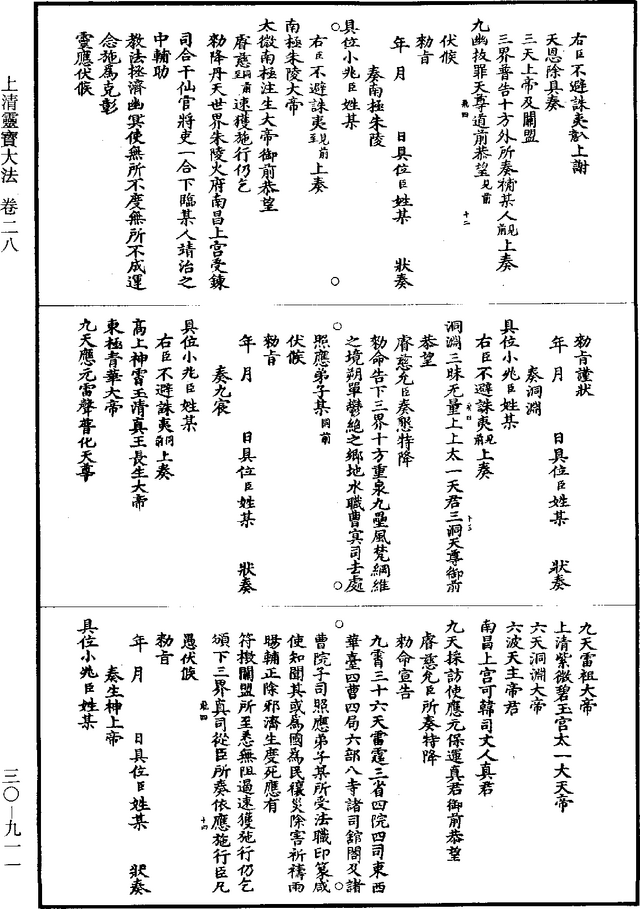 上清靈寶大法 卷二八
三〇—九一一
右臣不避誅夷云云上謝
天恩除具奏
三天上帝及關盟
三界普告十方外所奏補某人見前上奏
九幽拔罪天尊道前恭望見前
伏候
勅旨
年 月 日具位臣姓某 狀奏
奏南極朱陵
具位小兆臣姓某
右臣不避誅夷至見前上奏
南極朱陵大帝
太微南極注生大帝御前恭望
睿慈至同前速獲施行仍乞
勅降丹天世界朱陵火府南昌上宮受鍊
司合干仙官將吏一合下臨某人靖治之
中輔助
教法拯濟幽冥使無所不度無所不成運
念施為克彰
靈應伏候
勅旨謹狀
年 月 日具位臣姓某 狀奏
奏洞淵
具位小兆臣姓某
右臣不避誅夷見前上奏
洞淵三昧无量上上太一天君三洞天尊御前
恭望
睿慈允臣奏懇特降
勅命告下三界十方重泉九壘風梵綱維
之境朔單鬱絕之鄉地水職曹冥司去處
照應弟子某同前
伏候
勅旨
年 月 日具位臣姓某 狀奏
奏九宸
具位小兆臣姓某
右臣不避誅夷同前上奏
高上神霄玉清真王長生大帝
東極青華大帝
九天應元雷聲普化天尊
九天雷祖大帝
上清紫微碧玉宮太一大天帝
六天洞淵大帝
六波天主帝君
南昌上宮可韓司丈人真君
九天採訪使應元保運真君御前恭望
睿慈允臣所奏特降
勅命宣告
九霄三十六天雷霆三省四院四司東西
華臺四曹四局六部八寺諸司舘閣及諸
曹院子司照應弟子某所受法職印篆咸
使知聞其或為國為民禳災除害祈禱雨
暘輔正除邪濟生度死應有
符檄關盟所至悉無阻遏速獲施行仍乞
頒下三界真司從臣所奏依應施行臣凡
愚伏候
勅旨
年 月 日具位臣姓某 狀奏
奏生神上帝
具位小兆臣姓某